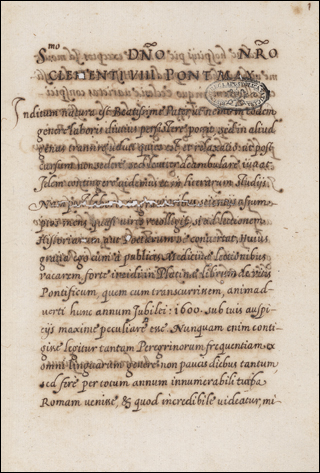 Smo DÑO ÑRO
CLEMENTI VIII. PONT. MAX.
Inditum natura est Beatissime Pater, ut nemo in eodem
genere laboris diutius persistere possit, sed in aliud
transire
cursum non sedere sed leviter deambulare iuvat.
Idem contingere videmus et in literarum studijs.
Nam
quasi vires recolligit, si ad lectionem
Historiarum piu Doctorum se convertat. Huius
gratia ego cum à publicis Medicinae lectionibus
vacarem, forte incidi in Platinae librum de vitis
Pontificum, quem cum transcurrerem, animad-
verti hunc annum Jubilei: 1600. sub tuis auspi-
cijs maxime peculiare esse. Nunquam enim conti-
gisse legitur tantam Peregrinorum frequentiam ex
omni linguarum genere non paucis diebus tantum
sed fere per totum annum innumerabili turba
Romam venisse, & quod incredibile videatur, mi-